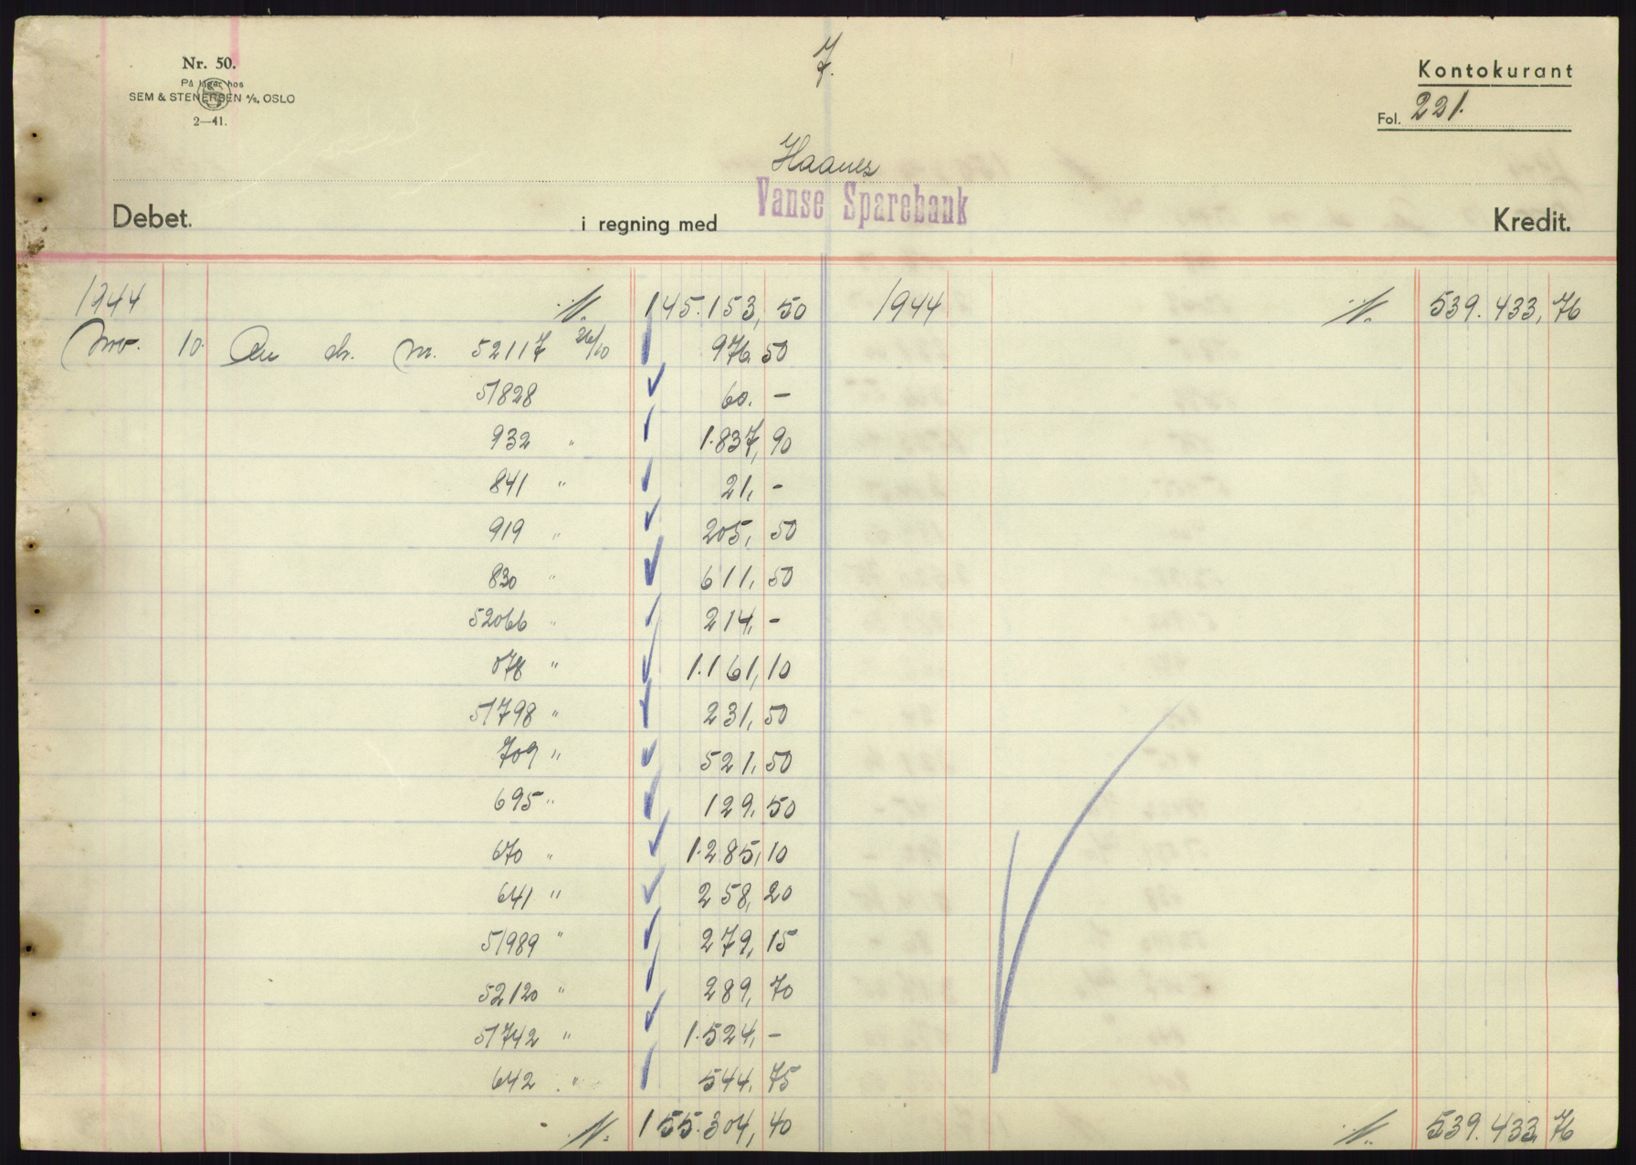 7.
Nr. 50.
På lager hos
SEM & STENERSEN A/S, OSLO
2—41.
Kontokurant
Fol. 221.
Haanes
Debet. i regning med Vanse Sparebank Kredit.
1944 145.153,50 1944 539.433,76
Nov. 10 An ch. nr. 52117 26/10 976.50
51828 60.-
932 " 1.837,90
841 " 21,-
919 " 205,50
830 " 611,50
52066 " 214,-
078 " 1.161,10
51798 " 231,50
709 " 521,50
695 " 129,50
670 " 1.285,10
641 " 258,20
51989 " 279,15
52120 " 289,70
51742 " 1.524,-
642 " 544.75
155.304,40 539.433,76